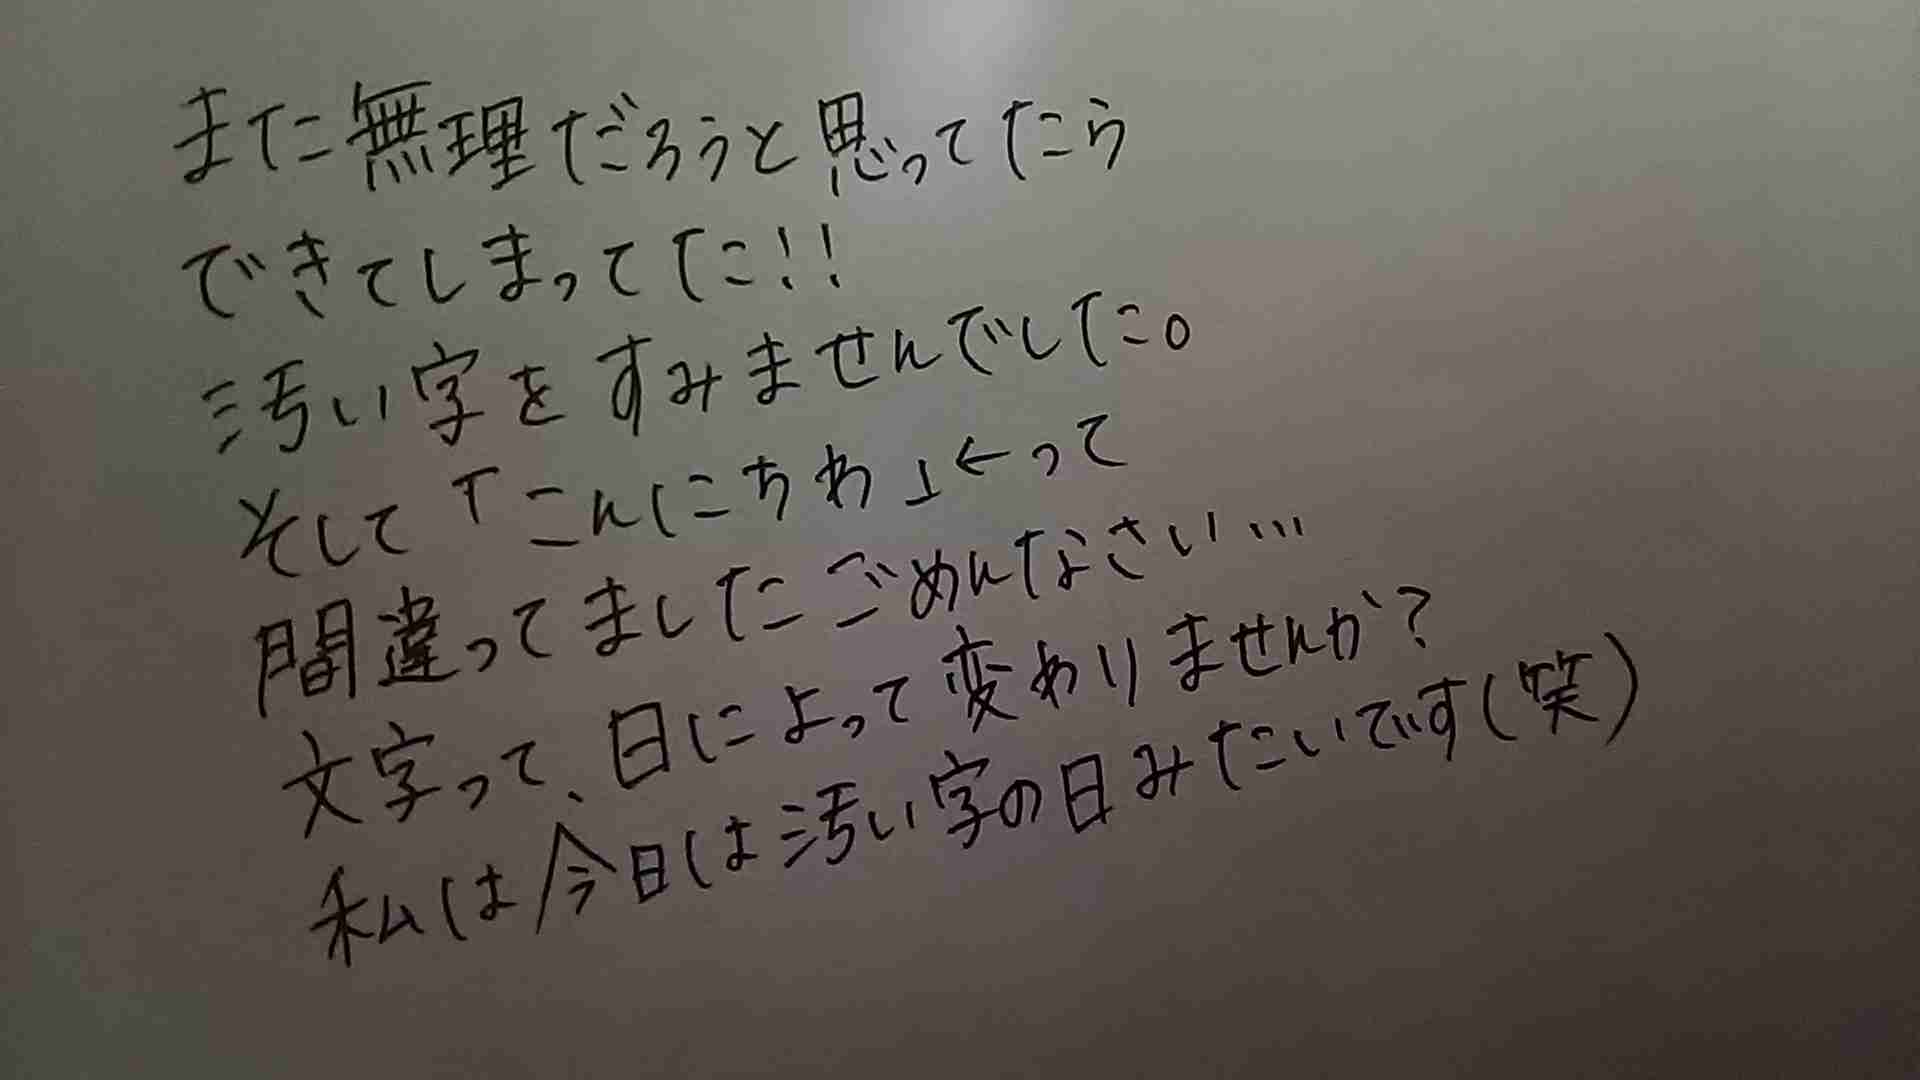 また無理だろうと思ってたら
できてしまってた!!
汚い字をすみませんでした。
そして「こんにちわ」←って
間違ってましたごめんなさい…
文字って、日によって変わりませんか?
私は今日は汚い字の日みたいです(笑)